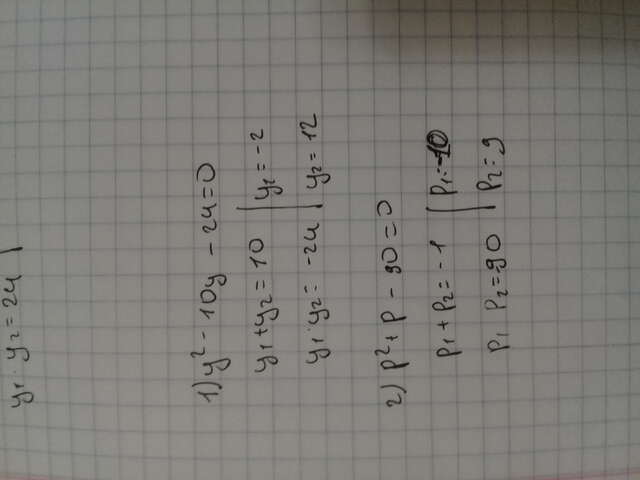 y₁ · y₂ = 24
1) y² - 10y - 24 = 0
y₁ + y₂ = 10 | y₁ = -2
y₁ · y₂ = -24 | y₂ = 12
2) p² + p - 90 = 0
p₁ + p₂ = -1 | p₁ = -10
p₁ p₂ = 90 | p₂ = 9